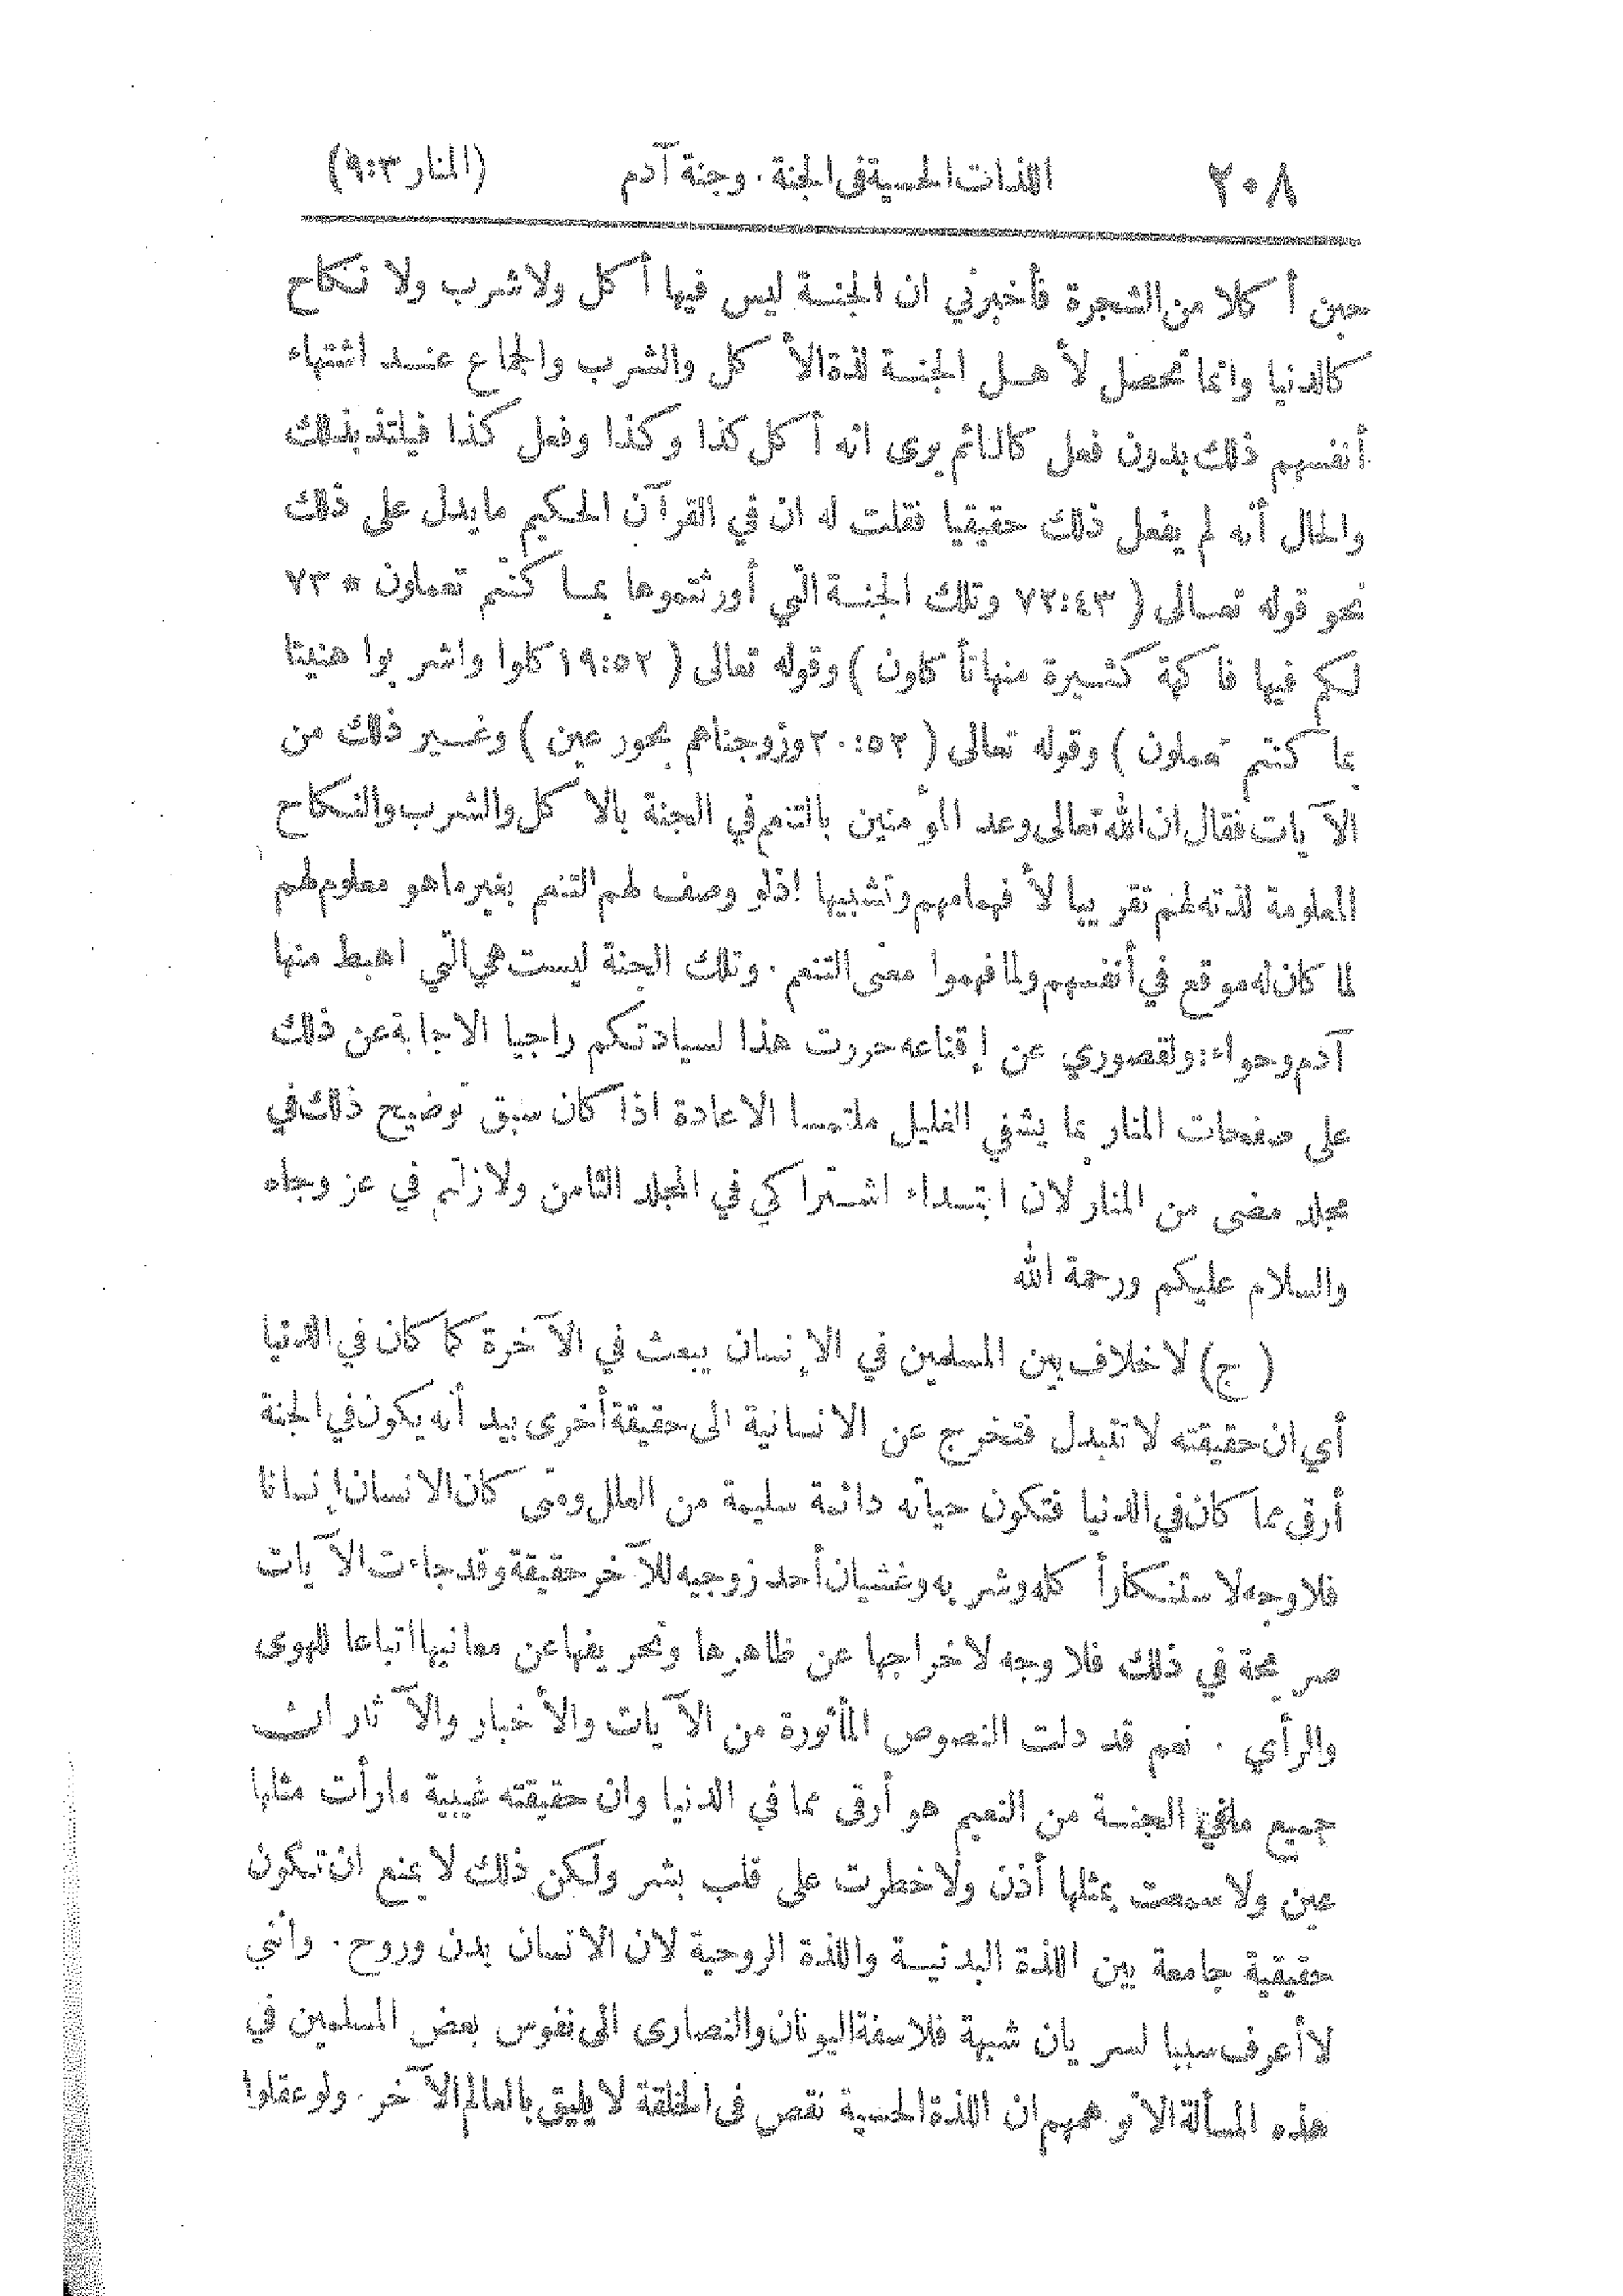 ٢٠٨ اللذات الحسية في الجنة. وجنة آدم (المنار ٩:٣)
حين أكلا من الشجرة فأخبرني ان الجنة ليس فيها أكل ولا شرب ولا نكاح
كالدنيا وانما تحصل لأهل الجنة لذة الأكل والشرب والجماع عند اشتهاء
أنفسهم ذلك بدون فعل كالنائم يرى انه أكل كذا وكذا وفعل كذا فيلتذ بذلك
والحال أنه لم يفعل ذلك حقيقيا فقلت له ان في القرآن الحكيم ما يدل على ذلك
نحو قوله تعالى ( ٧٢:٤٣ وتلك الجنة التي أورثتموها بما كنتم تعملون * ٧٣
لكم فيها فاكهة كثيرة منها تأكلون ) وقوله تعالى ( ١٩:٥٢ كلوا واشربوا هنيئا
بما كنتم تعملون ) وقوله تعالى ( ٢٠:٥٢ وزوجناهم بحور عين ) وغير ذلك من
الآيات فقال ان الله تعالى وعد المؤمنين بالتنعم في الجنة بالاكل والشرب والنكاح
المعلومة لذته لهم تقريبا لأفهامهم وتشبيها اذ لو وصف لهم التنعم بغير ما هو معلوم لهم
لما كان له موقع في أنفسهم ولما فهموا معنى التنعم. وتلك الجنة ليست هي التي اهبط منها
آدم وحواء: ولقصوري عن إقناعه حررت هذا لسيادتكم راجيا الاجابة عن ذلك
على صفحات المنار بما يشفي الغليل ملتمسا الاعادة اذا كان سبق توضيح ذلك في
مجلد مضى من المنار لان ابتداء اشتراكي في المجلد الثامن ولا زلتم في عز وجاه
والسلام عليكم ورحمة الله
( ج ) لا خلاف بين المسلمين في الإنسان يبعث في الآخرة كما كان في الدنيا
أي ان حقيقته لا تتبدل فتخرج عن الانسانية الى حقيقة أخرى بيد أنه يكون في الجنة
أرقى مما كان في الدنيا فتكون حياته دائمة سليمة من العلل ومتى كان الانسان إنسانا
فلا وجه لاستنكار أكله وشربه وغشيان أحد زوجيه للآخر حقيقة وقد جاءت الآيات
صريحة في ذلك فلا وجه لاخراجها عن ظاهرها وتحريفها عن معانيها اتباعا للهوى
والرأي. نعم قد دلت النصوص المأثورة من الآيات والأخبار والآثار ان
جميع ما في الجنة من النعيم هو أرقى مما في الدنيا وان حقيقته غيبية ما رأت مثلها
عين ولا سمعت بمثلها أذن ولا خطرت على قلب بشر ولكن ذلك لا يمنع ان تكون
حقيقية جامعة بين اللذة البدنية واللذة الروحية لان الانسان بدن وروح. وانني
لا أعرف سببا لسريان شبهة فلاسفة اليونان والنصارى الى نفوس بعض المسلمين في
هذه المسألة الا توهمهم ان اللذة الحسية نقص في الخلقة لا يليق بالعالم الآخر. ولو عقلوا